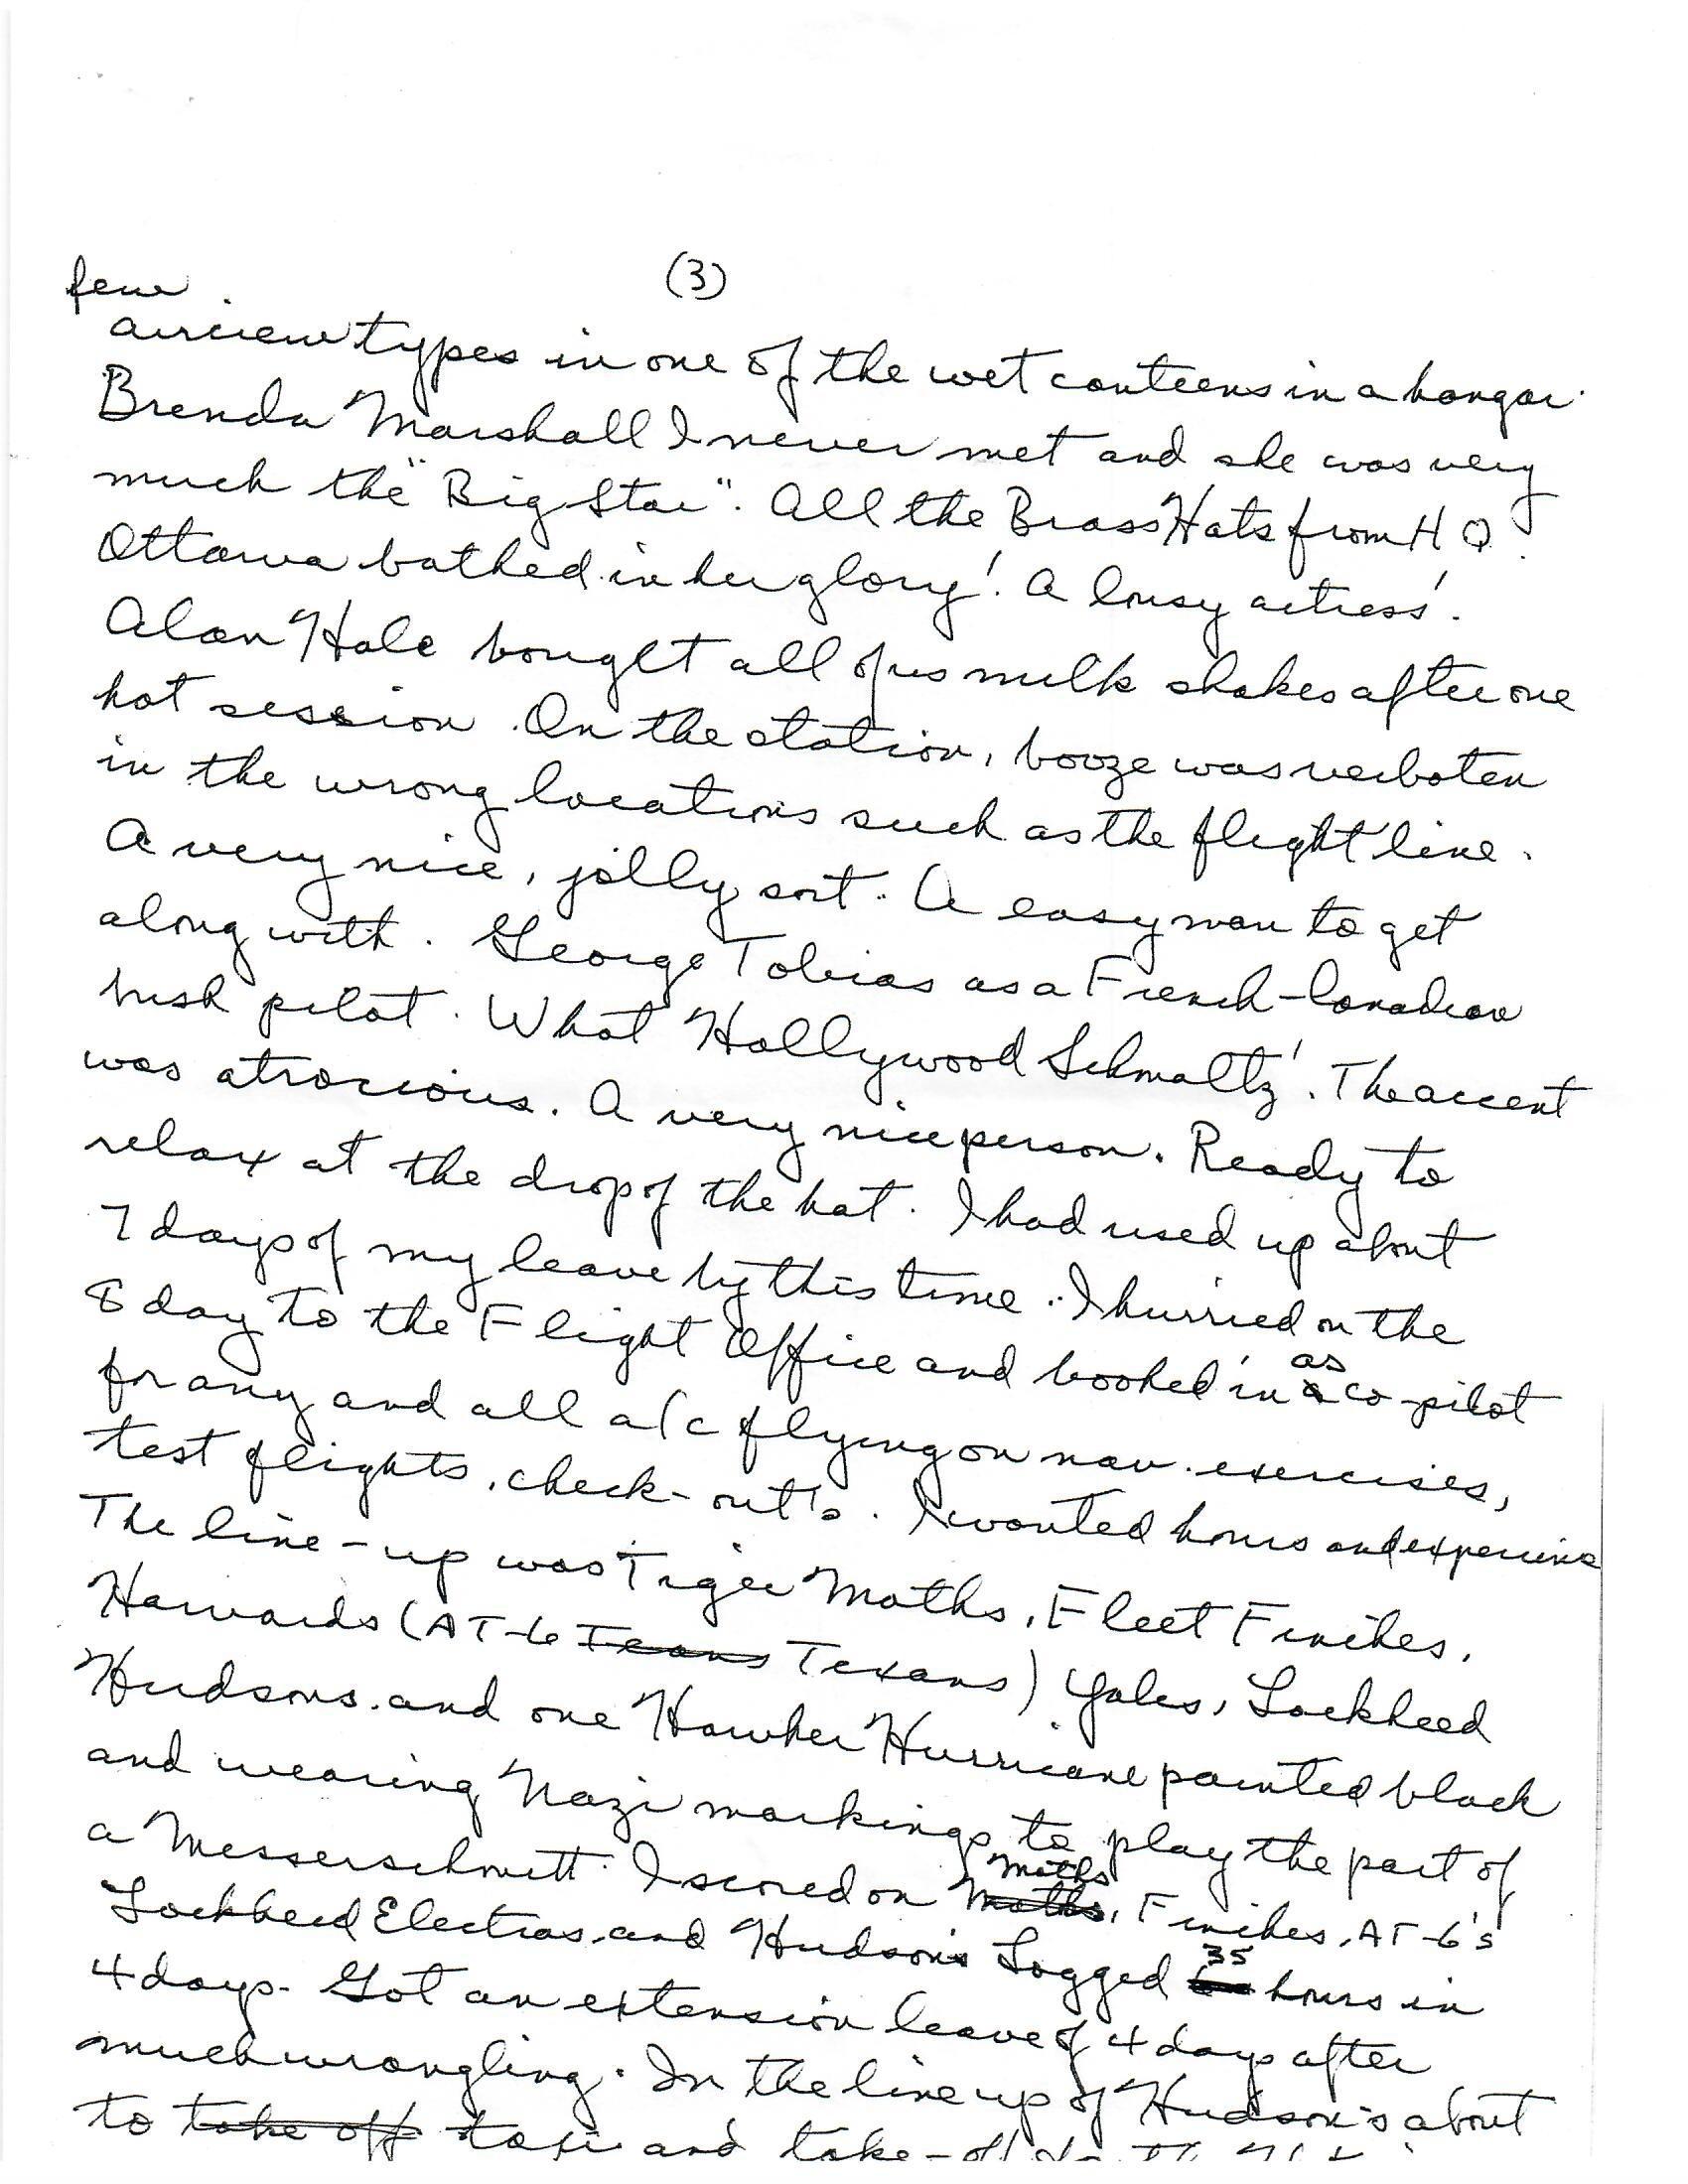 (3)
few
aircrew types in one of the wet canteens in a hangar.
Brenda Marshall I never met and she was very
much the "Big Star". All the Brass Hats from H Q.
Ottawa bathed in her glory! A lousy actress!
Alan Hale bought all of us milk shakes after one
hot session. On the station, booze was verboten
in the wrong locations such as the flight line.
A very nice, jolly sort. A easy man to get
along with. George Tobias as a French-Canadian
bush pilot. What Hollywood Schmaltz! The accent
was atrocious. A very nice person. Ready to
relax at the drop of the hat. I had used up about
7 days of my leave by this time. I hurried on the
8 day to the Flight Office and booked in as co-pilot
for any and all a/c flying on nav. exercises,
test flights, check-out's. I wanted hours and experience
The line-up was Tiger Moths, Fleet Finches,
Harvards (AT-6 Teans Texans) Yales, Lockheed
Hudsons and one Hawker Hurricane painted black
and wearing Nazi markings to play the part of
a Messerschmitt. I scored on Moths Moths, Finches, AT-6's
Lockheed Electras and Hudson's Logged 35 hours in
4 days. Got an extension leave of 4 days after
much wrangling. In the line up of Hudson's about
to take off taxi and take-off